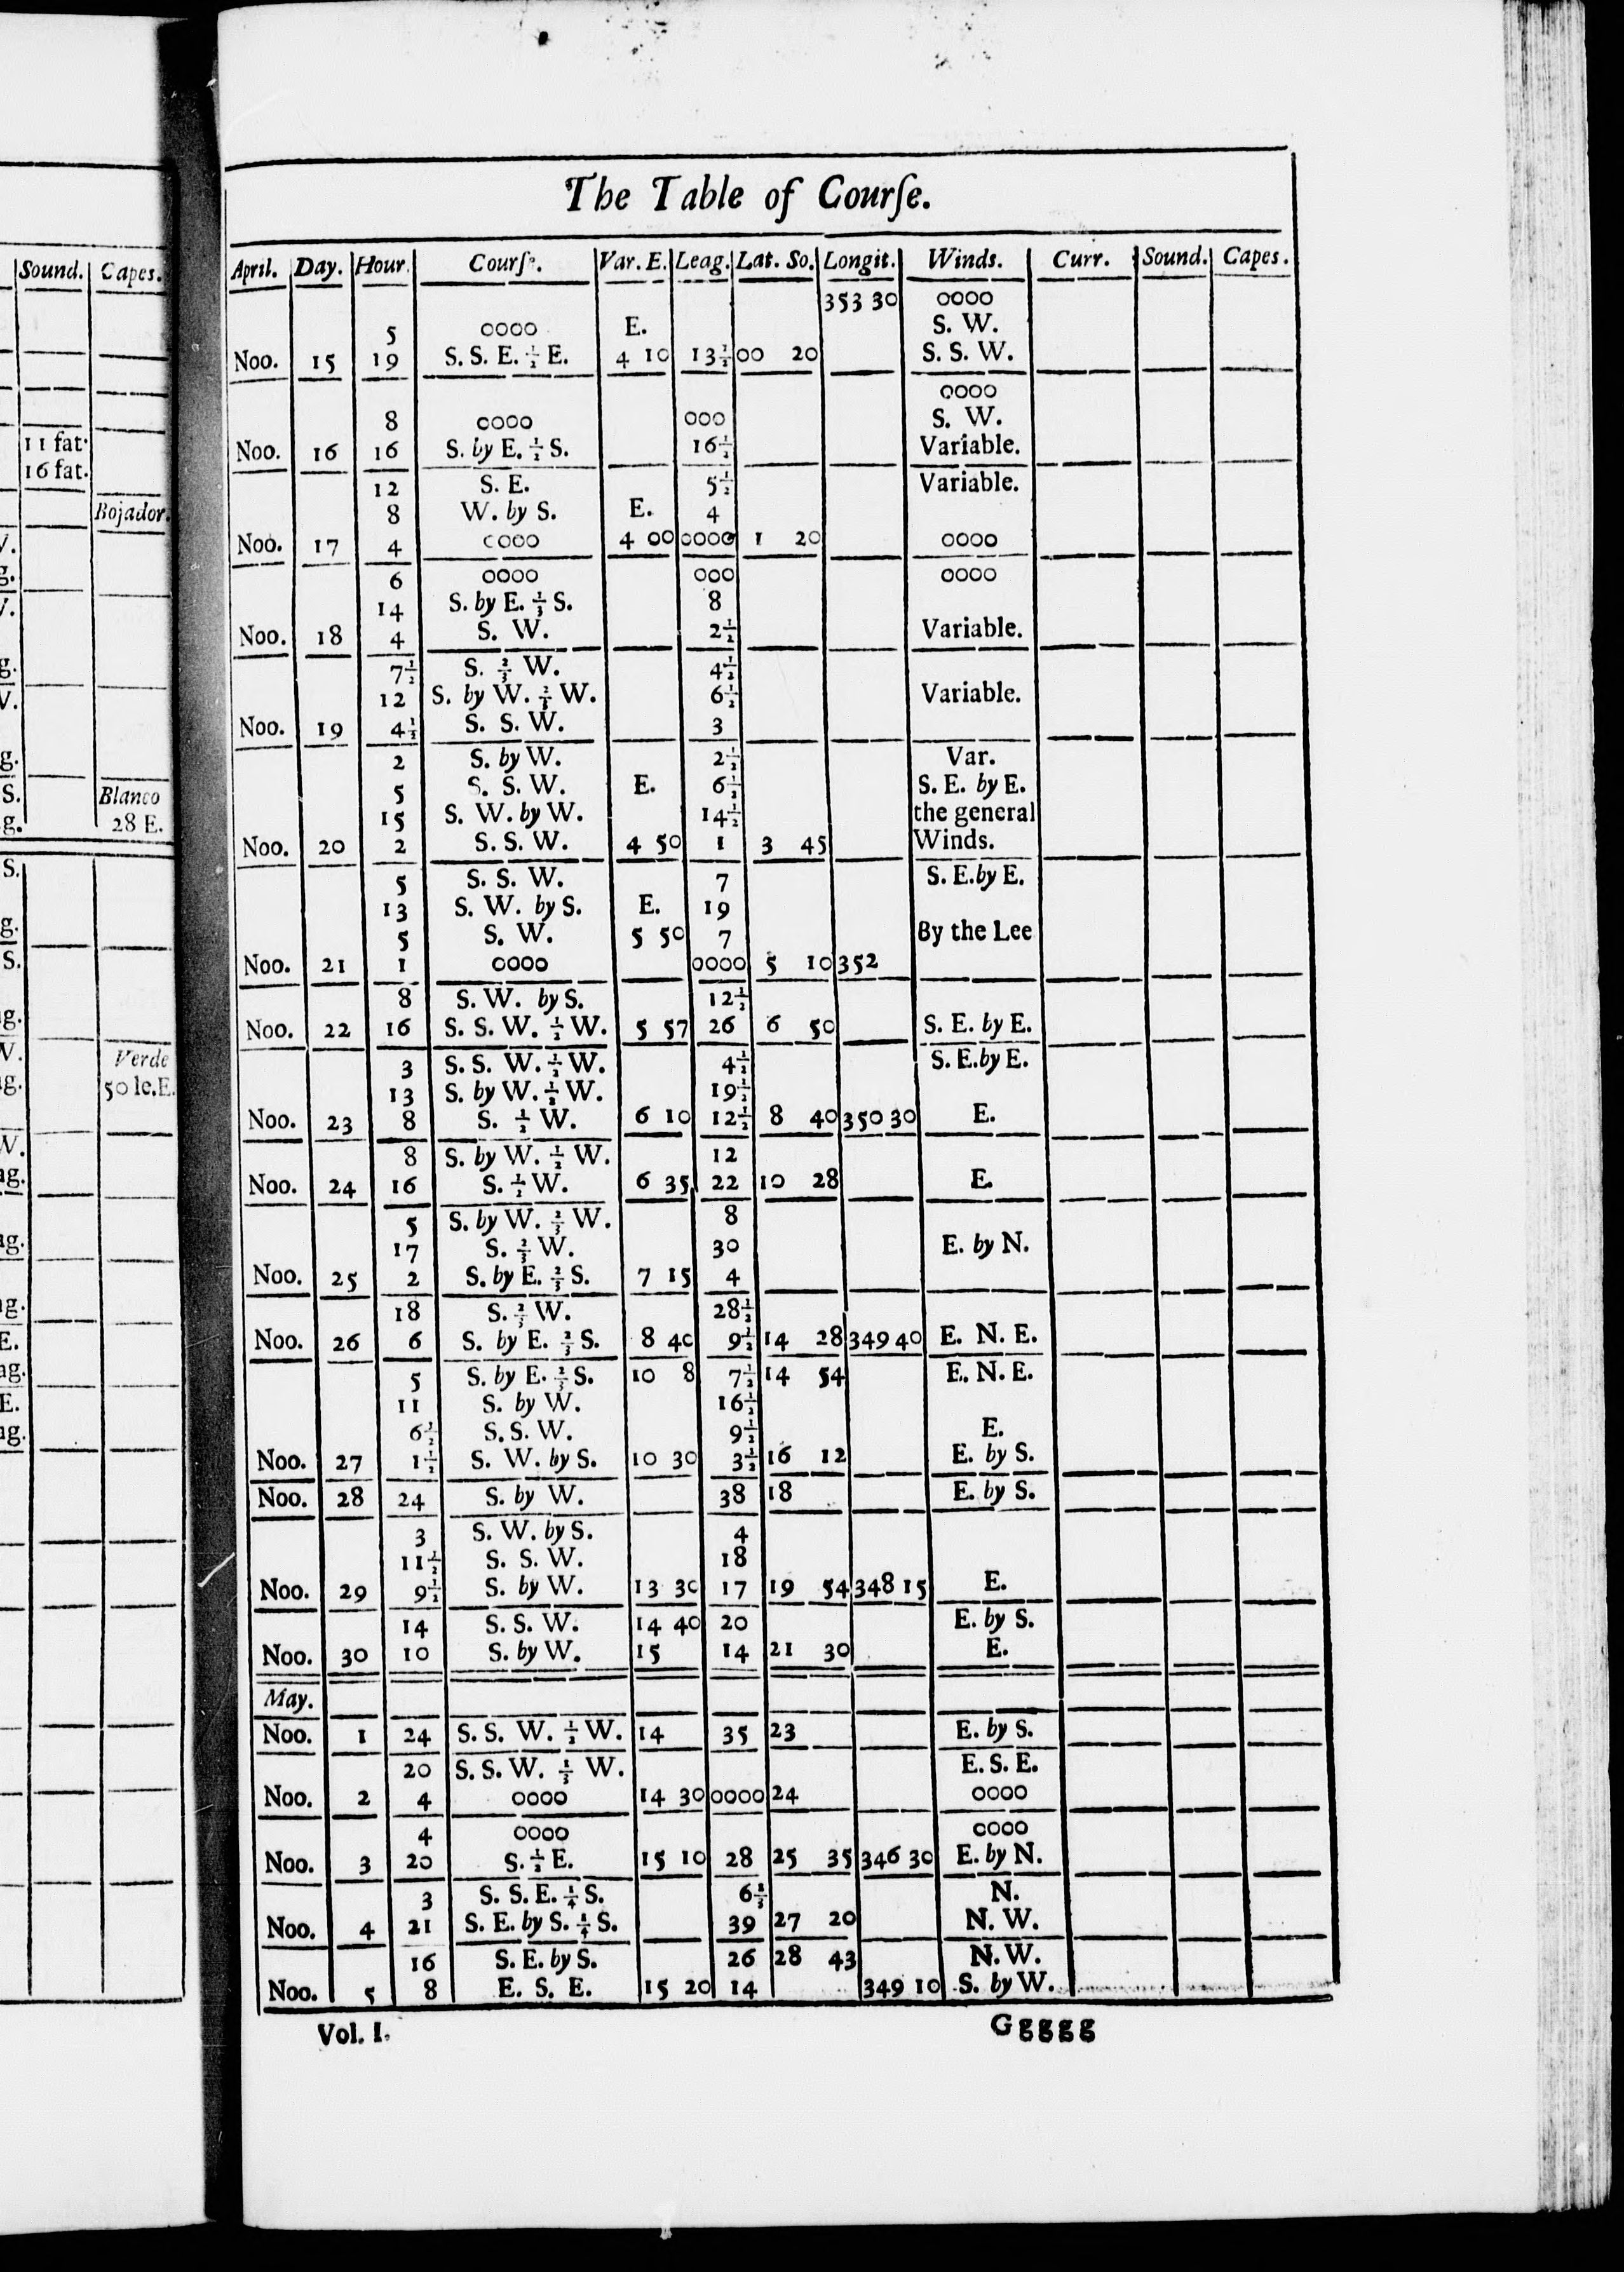 Sound. Capes.
11 fat.
16 fat.
Bojador.
Blanco
28 E.
Verde
50 le. E.
The Table of Courſe.
April. Day. Hour. Courſe. Var. E. Leag. Lat. So. Longit. Winds. Curr. Sound. Capes.
353 30 0000
5 0000 E. S. W.
Noo. 15 19 S. S. E. ½ E. 4 10 13½ 00 20 S. S. W.
0000
8 0000 000 S. W.
Noo. 16 16 S. by E. ½ S. 16½ Variable.
12 S. E. 5½ Variable.
8 W. by S. E. 4
Noo. 17 4 0000 4 00 0000 1 20 0000
6 0000 000 0000
14 S. by E. ⅓ S. 8
Noo. 18 4 S. W. 2½ Variable.
7½ S. ⅔ W. 4½
12 S. by W. ⅔ W. 6½ Variable.
Noo. 19 4½ S. S. W. 3
2 S. by W. 2½ Var.
5 S. S. W. E. 6½ S. E. by E.
15 S. W. by W. 14½ the general
Noo. 20 2 S. S. W. 4 50 1 3 45 Winds.
5 S. S. W. 7 S. E. by E.
13 S. W. by S. E. 19
5 S. W. 5 50 7 By the Lee
Noo. 21 1 0000 0000 5 10 352
8 S. W. by S. 12½
Noo. 22 16 S. S. W. ½ W. 5 57 26 6 50 S. E. by E.
3 S. S. W. ½ W. 4½ S. E. by E.
13 S. by W. ½ W. 19½
Noo. 23 8 S. ½ W. 6 10 12½ 8 40 350 30 E.
8 S. by W. ½ W. 12
Noo. 24 16 S. ½ W. 6 35 22 10 28 E.
5 S. by W. ⅔ W. 8
17 S. ⅔ W. 30 E. by N.
Noo. 25 2 S. by E. ⅔ S. 7 15 4
18 S. ⅔ W. 28½
Noo. 26 6 S. by E. ⅔ S. 8 40 9½ 14 28 349 40 E. N. E.
5 S. by E. ⅔ S. 10 8 7½ 14 54 E. N. E.
11 S. by W. 16½
6½ S. S. W. 9½ E.
Noo. 27 1½ S. W. by S. 10 30 3½ 16 12 E. by S.
Noo. 28 24 S. by W. 38 18 E. by S.
3 S. W. by S. 4
11½ S. S. W. 18
Noo. 29 9½ S. by W. 13 30 17 19 54 348 15 E.
14 S. S. W. 14 40 20 E. by S.
Noo. 30 10 S. by W. 15 14 21 30 E.
May.
Noo. 1 24 S. S. W. ½ W. 14 35 23 E. by S.
20 S. S. W. ⅓ W. E. S. E.
Noo. 2 4 0000 14 30 0000 24 0000
4 0000 0000
Noo. 3 20 S. ½ E. 15 10 28 25 35 346 30 E. by N.
3 S. S. E. ¼ S. 6⅓ N.
Noo. 4 21 S. E. by S. ¼ S. 39 27 20 N. W.
16 S. E. by S. 26 28 43 N. W.
Noo. 5 8 E. S. E. 15 20 14 349 10 S. by W.
Vol. I. Ggggg